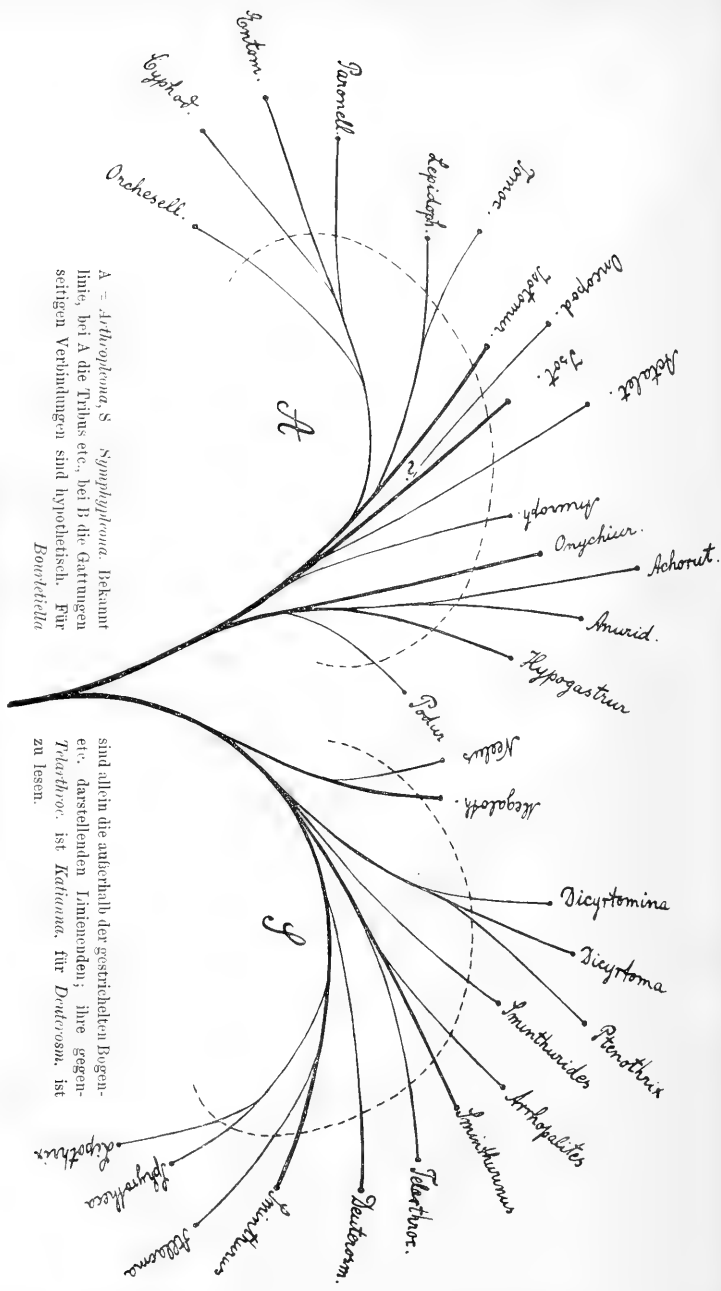 Orchesell.
Cyphod.
Entom.
Paronell.
Lepidoph.
Tomoc.
Isotomur.
Oncopod.
Isot.
?
Actalet.
Anuroph.
Onychiur.
Achorut.
Anurid.
Hypogastrur
Podur
A
Neelus
Megaloth.
Dicyrtomina
Dicyrtoma
Ptenothrix
Sminthurides
Arrhopalites
Sminthurinus
Telarthroc.
Deuterosm.
Sminthurus
Allacma
Sphyrotheca
Lipothrix
S
A = Arthropleona, S Symphypleona. Bekannt
sind allein die außerhalb der gestrichelten Bogen-
linie, bei A die Tribus etc., bei B die Gattungen
etc. darstellenden Linienenden; ihre gegen-
seitigen Verbindungen sind hypothetisch. Für
Telarthroc. ist Katianna, für Deuterosm. ist
Bourletiella
zu lesen.